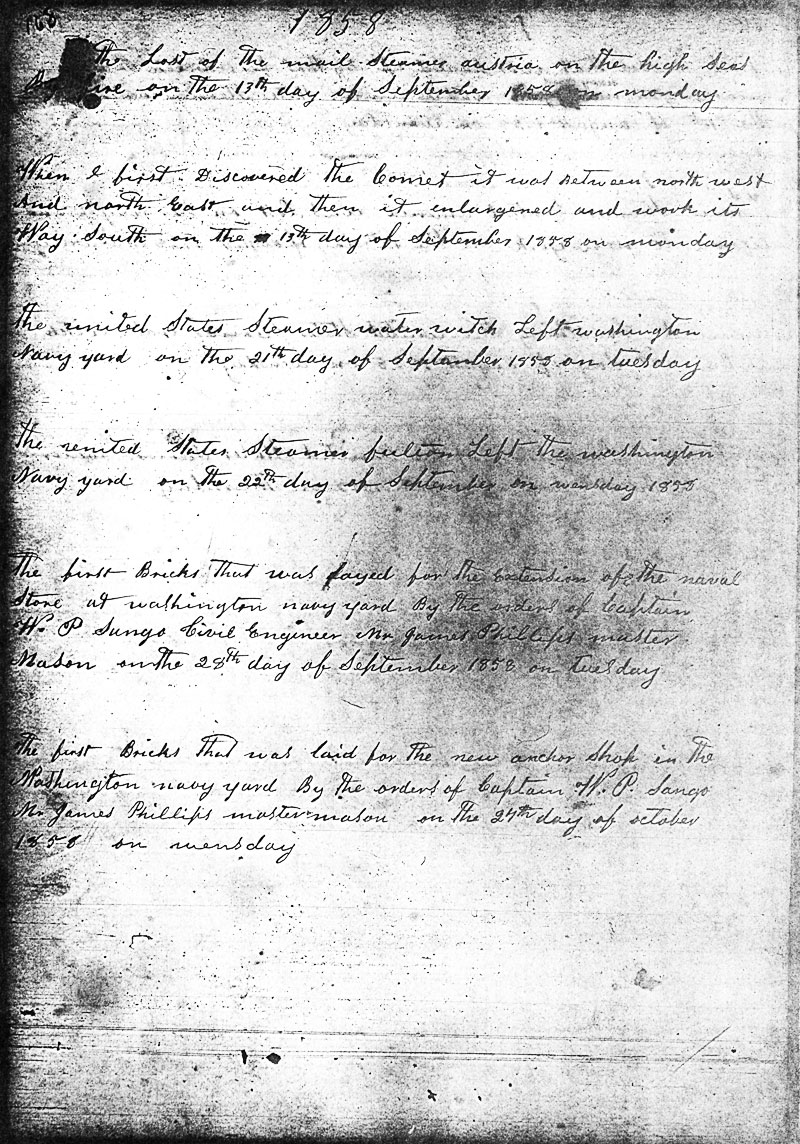 168
1858
the Lost of the mail Steamer austria on the high Seas
By fire on the 13th day of September 1858 on monday
When I first Discovered the Comet it was Between north west
And north East and then it enlargened and work its
Way South on the 13th day of September 1858 on monday
the united States Steamer water witch Left washington
Navy yard on the 21th day of September 1858 on tuesday
the united States Steamer fulton Left the washington
Navy yard on the 22th day of September on wensday 1858
The first Bricks that was layed for the Extension of the naval
Store at washington navy yard By the orders of Captain
W. P Sango Civil Engineer Mr James Phillips master
Mason on the 28th day of September 1858 on tuesday
The first Bricks that was laid for the new anchor Shop in the
Washington navy yard By the orders of Captain W. P. Sango
Mr James Phillips master mason on the 27th day of october
1858 on wensday